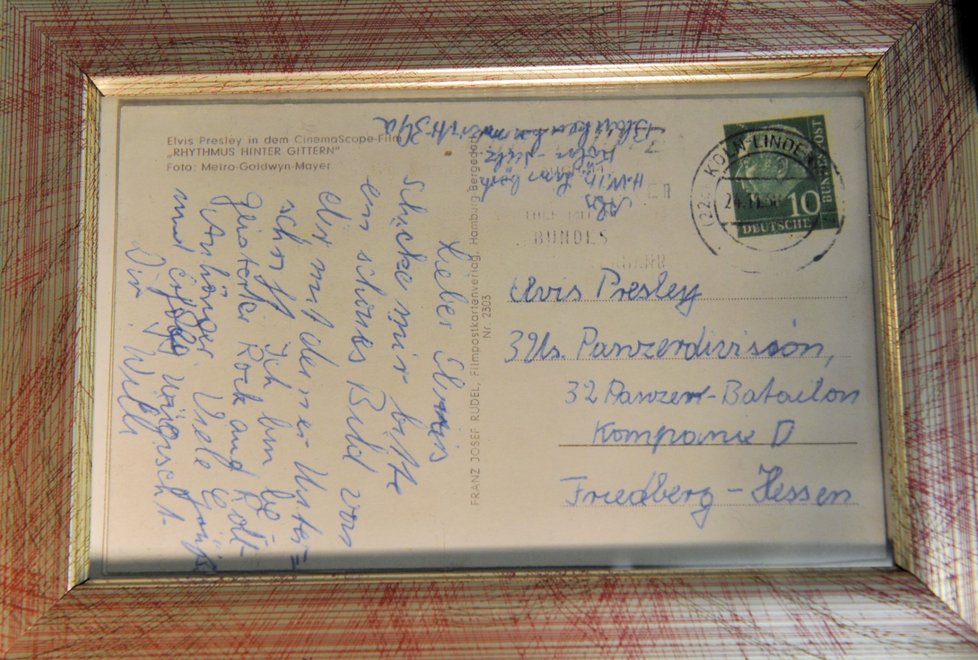 Elvis Presley in dem CinemaScope-Film
„RHYTHMUS HINTER GITTERN"
Foto: Metro-Goldwyn-Mayer
Lieber Elvis
schicke mir bitte
ein schönes Bild von
dir mit deiner Unter=
schrift Ich bin be
geisterter Rock and Roll-
Anhänger Viele Grüße
und Erfolg wünscht
Dir Willi
FRANZ JOSEF RÜDEL, Filmpostkartenverlag, Hamburg Bergedorf
Nr. 2303
Abs
H. Willi
Köln-
BUNDES
(22c) KÖLN-LINDEN
10
DEUTSCHE BUNDESPOST
Elvis Presley
3 Us. Panzerdivision,
32 Panzer-Batailon
Kompanie D
Friedberg - Hessen